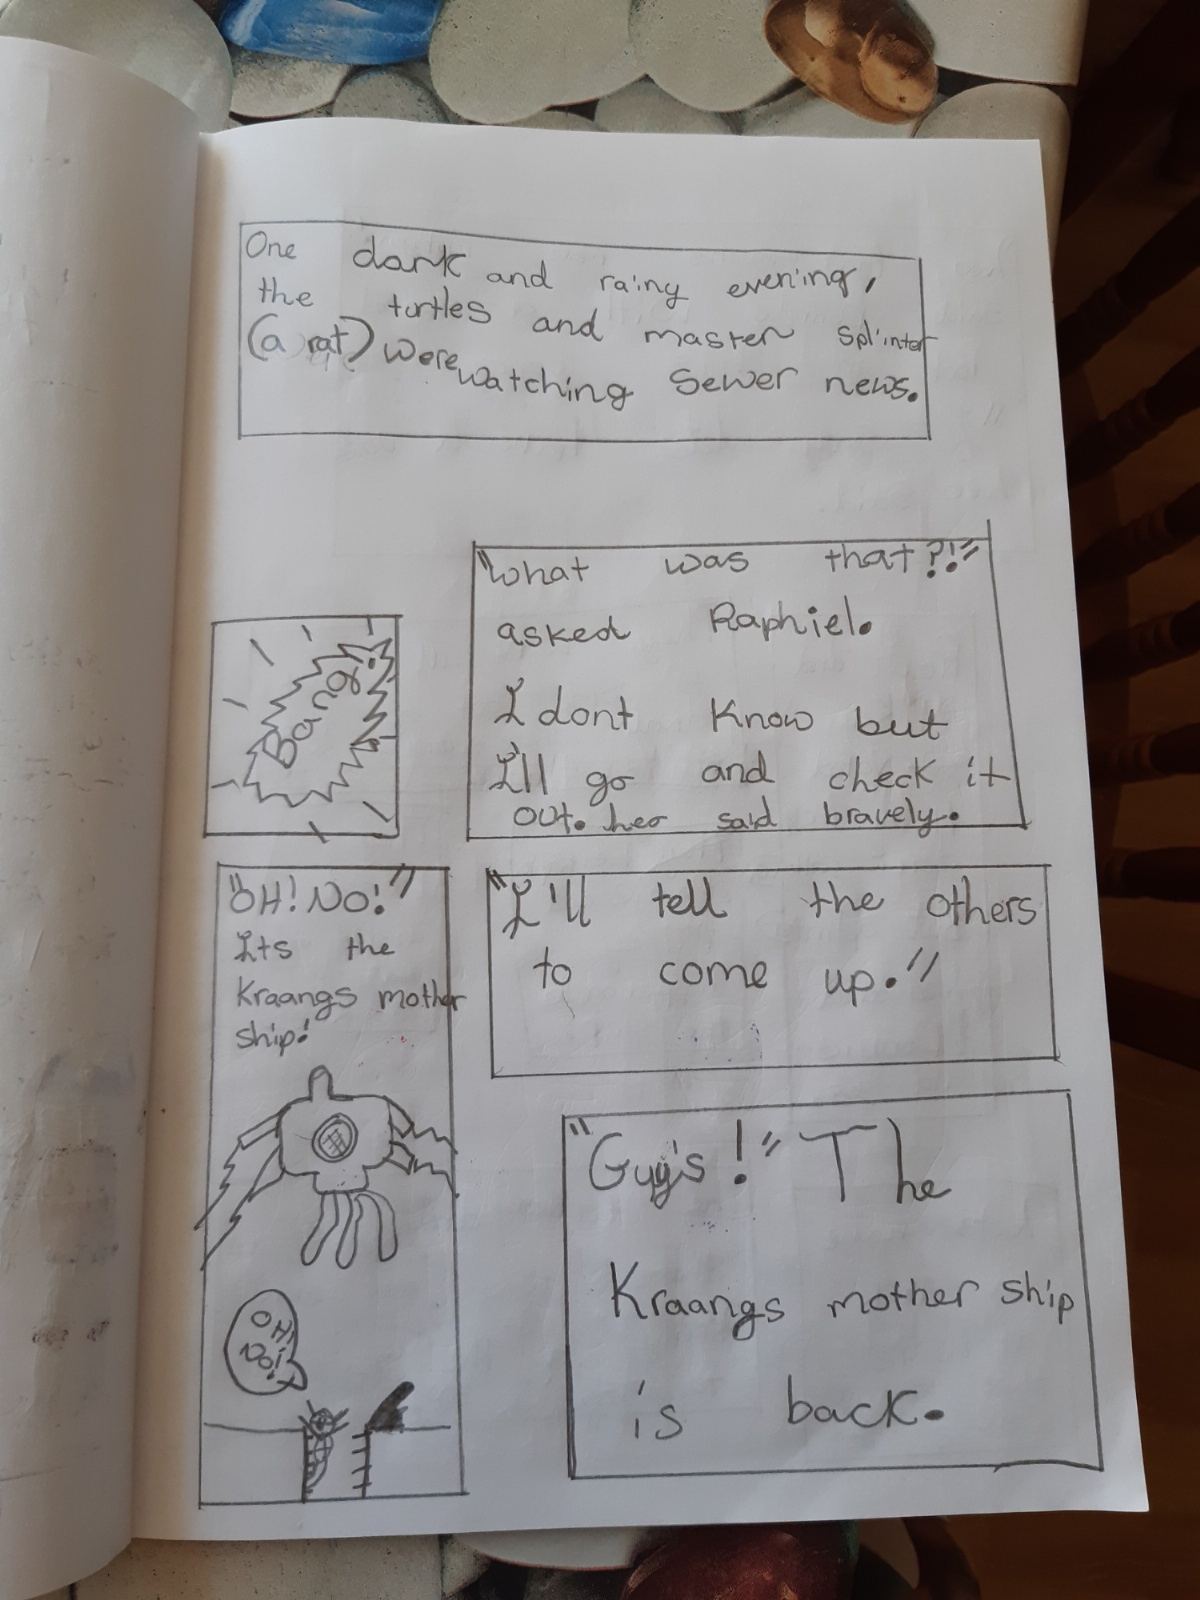 One dark and rainy evening,
the turtles and master splinter
(a rat) were watching Sewer news.
Bang!
"What was that?!"
asked Raphiel.
I dont know but
I'll go and check it
out. heo said bravely.
"OH! NO!"
Its the
Kraangs mother
ship!
OH!
NO!
"I'll tell the others
to come up."
"Guy's!" The
Kraangs mother ship
is back.